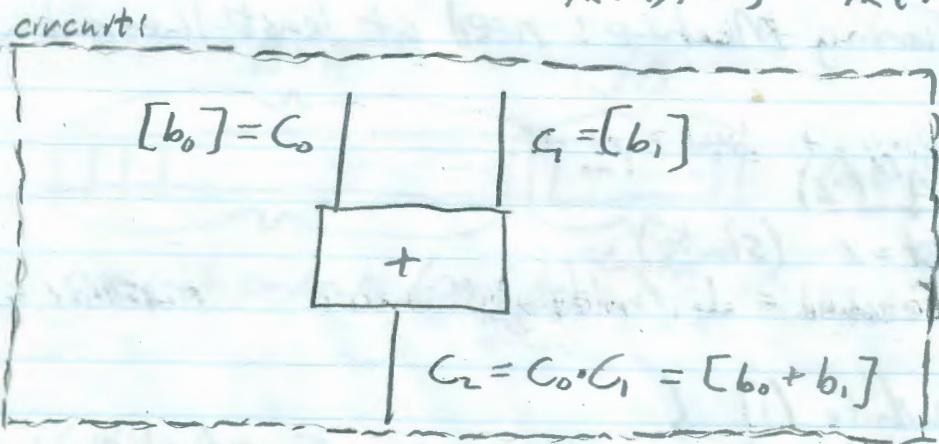 circuit!
[b₀] = C₀
C₁ = [b₁]
+
C₂ = C₀·C₁ = [b₀ + b₁]